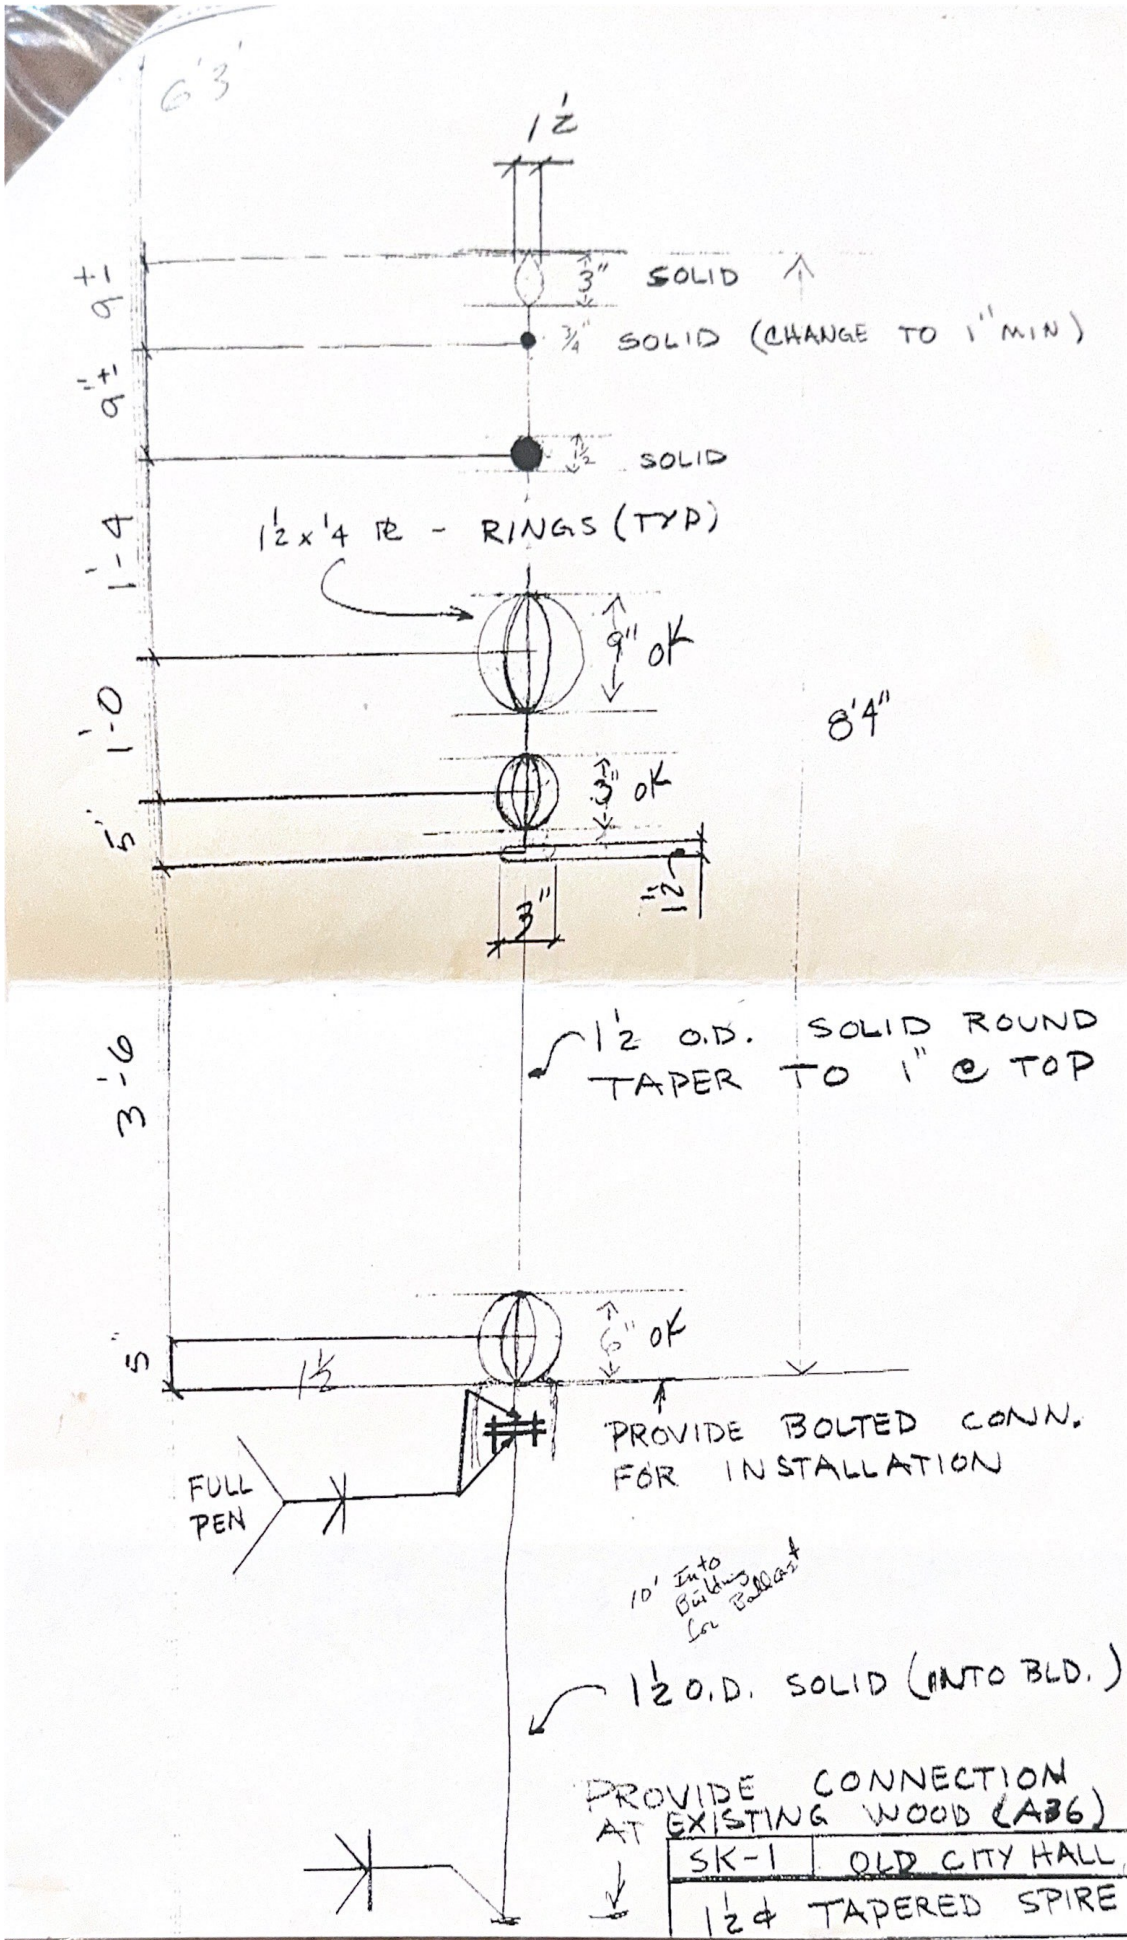 6'3'
1 1/2
9 ±
3" SOLID
3/4" SOLID (CHANGE TO 1" MIN)
9"±
1 1/2 SOLID
1'-4
1 1/2 x 1/4 PL - RINGS (TYP)
9" OK
1'-0
8'4"
3" OK
5"
3"
1/2"
3'-6
1 1/2 O.D. SOLID ROUND
TAPER TO 1" @ TOP
6" OK
5"
1 1/2
PROVIDE BOLTED CONN.
FOR INSTALLATION
FULL
PEN
10' Into
Building
for Ballast
1 1/2 O.D. SOLID (INTO BLD.)
PROVIDE CONNECTION
AT EXISTING WOOD (A36)
SK-1 OLD CITY HALL
1 1/2 φ TAPERED SPIRE